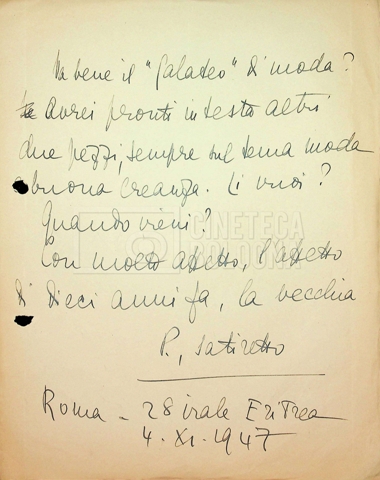 Va bene il "Galateo" di moda?
Avrei pronti in testa altri
due pezzi, sempre sul tema moda
e buona creanza. Li vuoi?
Quando vieni?
CINETECA
BOLOGNA
Con molto affetto, l'affetto
di dieci anni fa, la vecchia
P.,
Roma - 28 viale Eritrea
4. XI. 1947